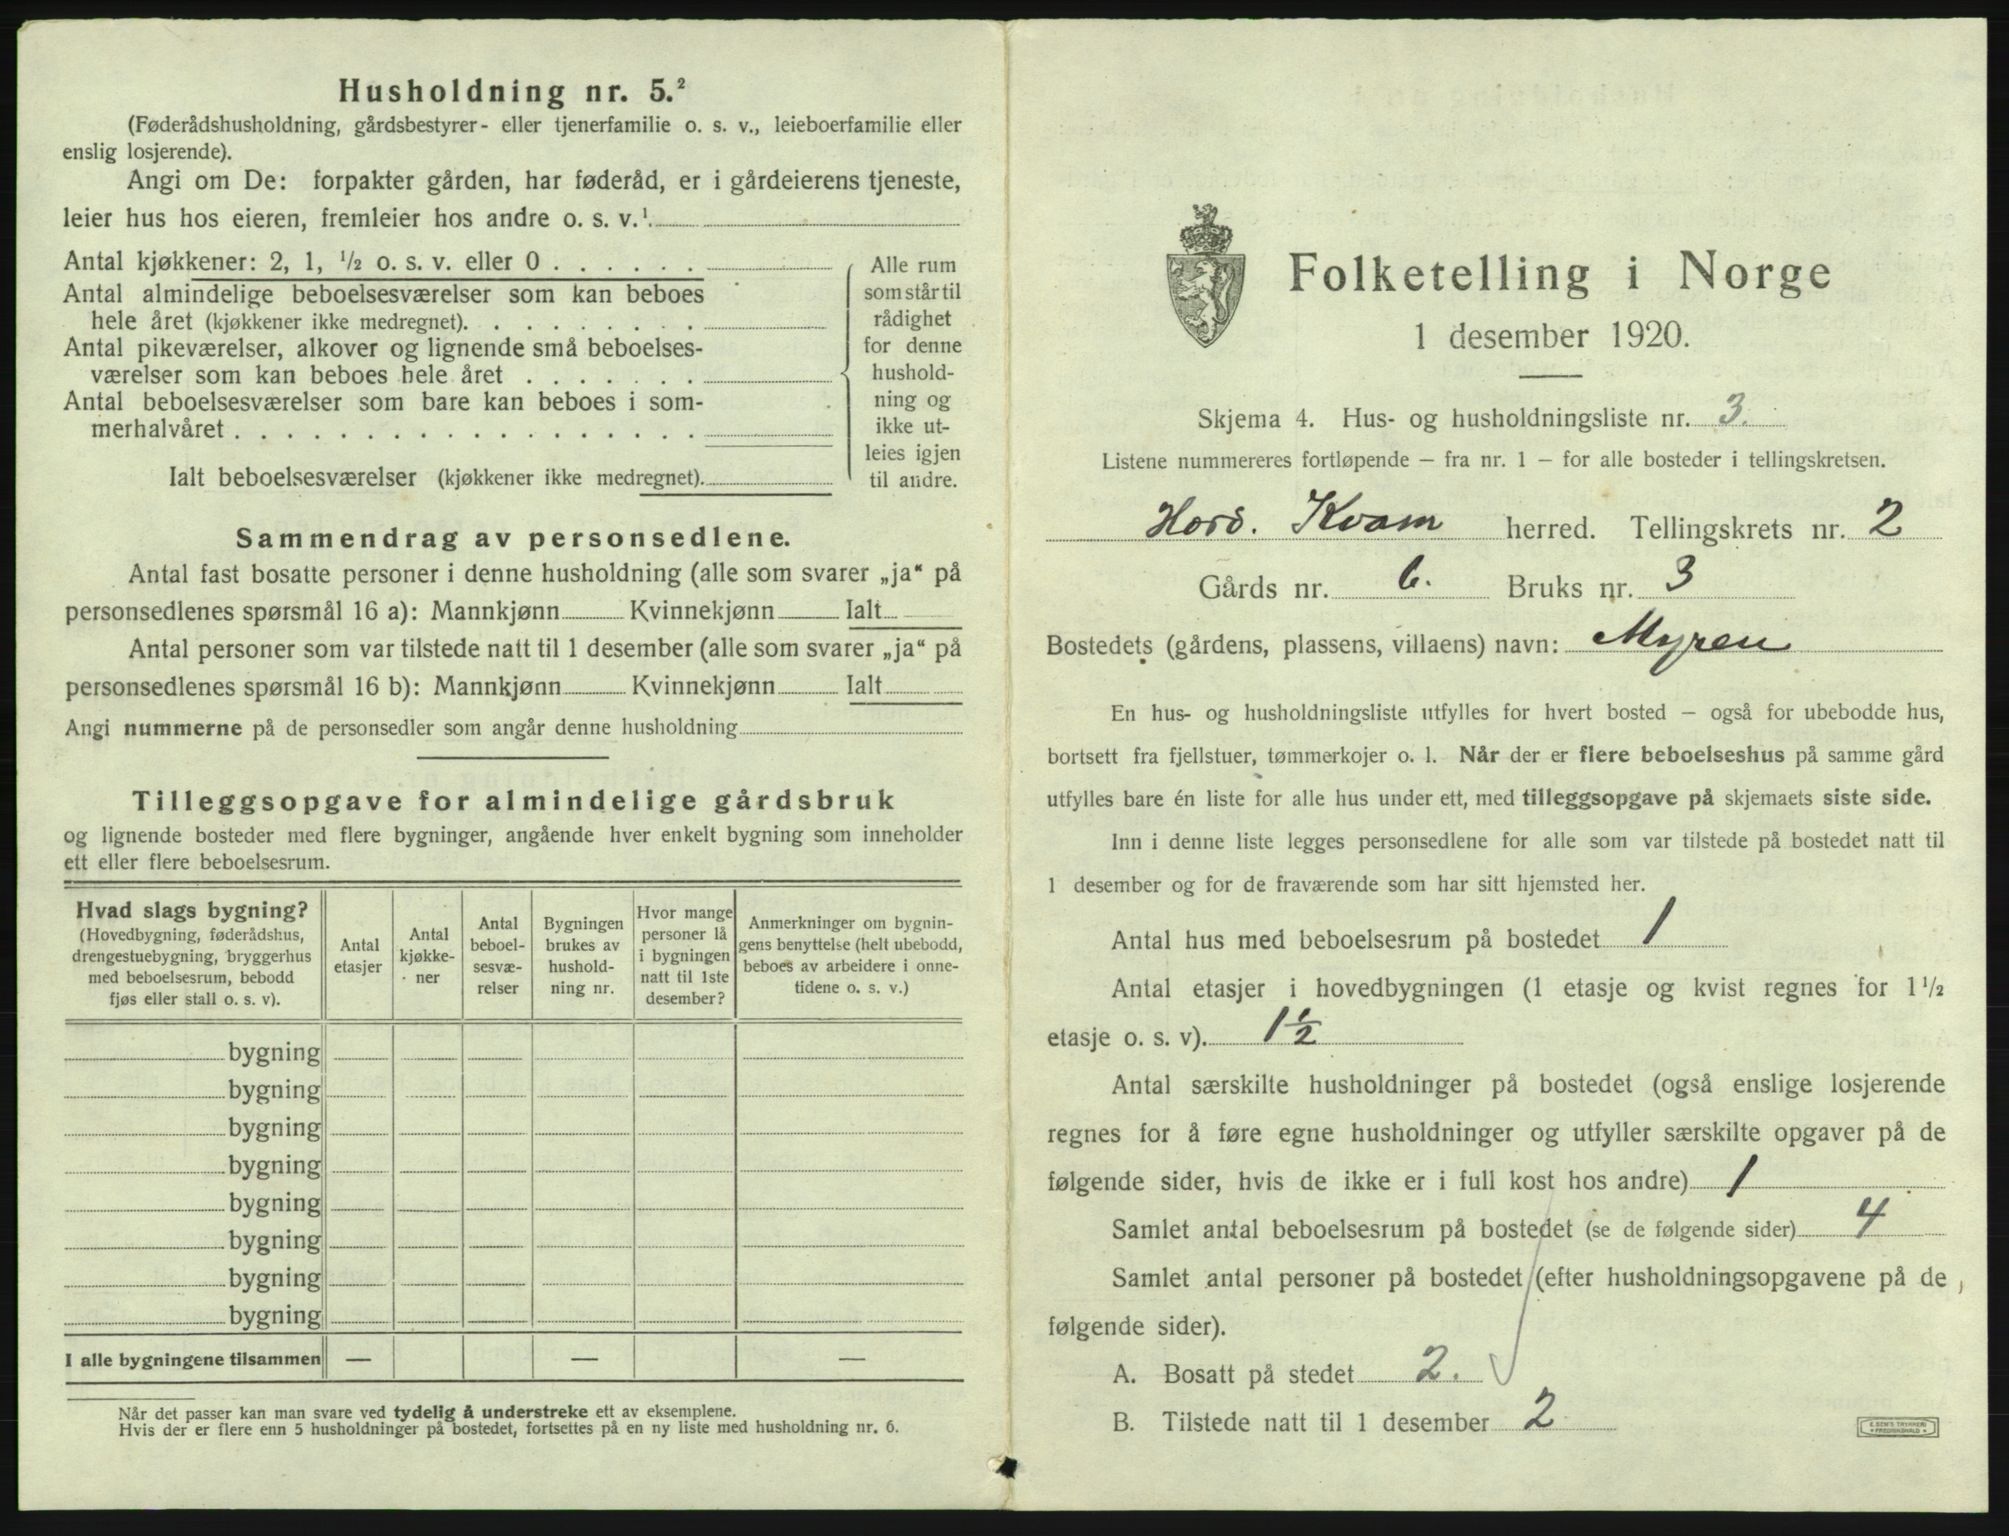 Husholdning nr. 5.²
(Føderådshusholdning, gårdsbestyrer- eller tjenerfamilie o. s. v., leieboerfamilie eller
enslig losjerende).
Angi om De: forpakter gården, har føderåd, er i gårdeierens tjeneste,
leier hus hos eieren, fremleier hos andre o. s. v.¹
Antal kjøkkener: 2, 1, ½ o. s. v. eller 0 . . . . . .
Antal almindelige beboelsesværelser som kan beboes
hele året (kjøkkener ikke medregnet). . . . . . . . .
Antal pikeværelser, alkover og lignende små beboelses-
værelser som kan beboes hele året . . . . . . .
Antal beboelsesværelser som bare kan beboes i som-
merhalvåret . . . . . . . . . . . . . . . . . .
Ialt beboelsesværelser (kjøkkener ikke medregnet).
Alle rum
som står til
rådighet
for denne
hushold-
ning og
ikke ut-
leies igjen
til andre.
Sammendrag av personsedlene.
Antal fast bosatte personer i denne husholdning (alle som svarer „ja“ på
personsedlenes spørsmål 16 a): Mannkjønn Kvinnekjønn Ialt
Antal personer som var tilstede natt til 1 desember (alle som svarer „ja“ på
personsedlenes spørsmål 16 b): Mannkjønn Kvinnekjønn Ialt
Angi nummerne på de personsedler som angår denne husholdning
Tilleggsopgave for almindelige gårdsbruk
og lignende bosteder med flere bygninger, angående hver enkelt bygning som inneholder
ett eller flere beboelsesrum.
Hvad slags bygning?
(Hovedbygning, føderådshus,
drengestuebygning, bryggerhus
med beboelsesrum, bebodd
fjøs eller stall o. s. v).
Antal
etasjer
Antal
kjøkke-
ner
Antal
beboel-
sesvæ-
relser
Bygningen
brukes av
hushold-
ning nr.
Hvor mange
personer lå
i bygningen
natt til 1ste
desember?
Anmerkninger om bygnin-
gens benyttelse (helt ubebodd,
beboes av arbeidere i onne-
tidene o. s. v.)
bygning
bygning
bygning
bygning
bygning
bygning
bygning
bygning
I alle bygningene tilsammen — — —
Når det passer kan man svare ved tydelig å understreke ett av eksemplene.
Hvis der er flere enn 5 husholdninger på bostedet, fortsettes på en ny liste med husholdning nr. 6.
Folketelling i Norge
1 desember 1920.
Skjema 4. Hus- og husholdningsliste nr. 3.
Listene nummereres fortløpende – fra nr. 1 – for alle bosteder i tellingskretsen.
Hord. Kvam herred. Tellingskrets nr. 2
Gårds nr. 6. Bruks nr. 3
Bostedets (gårdens, plassens, villaens) navn: Myren
En hus- og husholdningsliste utfylles for hvert bosted – også for ubebodde hus,
bortsett fra fjellstuer, tømmerkojer o. l. Når der er flere beboelseshus på samme gård
utfylles bare én liste for alle hus under ett, med tilleggsopgave på skjemaets siste side.
Inn i denne liste legges personsedlene for alle som var tilstede på bostedet natt til
1 desember og for de fraværende som har sitt hjemsted her.
Antal hus med beboelsesrum på bostedet 1
Antal etasjer i hovedbygningen (1 etasje og kvist regnes for 1½
etasje o. s. v). 1½
Antal særskilte husholdninger på bostedet (også enslige losjerende
regnes for å føre egne husholdninger og utfyller særskilte opgaver på de
følgende sider, hvis de ikke er i full kost hos andre) 1
Samlet antal beboelsesrum på bostedet (se de følgende sider) 4
Samlet antal personer på bostedet (efter husholdningsopgavene på de
følgende sider).
A. Bosatt på stedet 2.
B. Tilstede natt til 1 desember 2
E. SEM'S TRYKKERI
FREDRIKSHALD